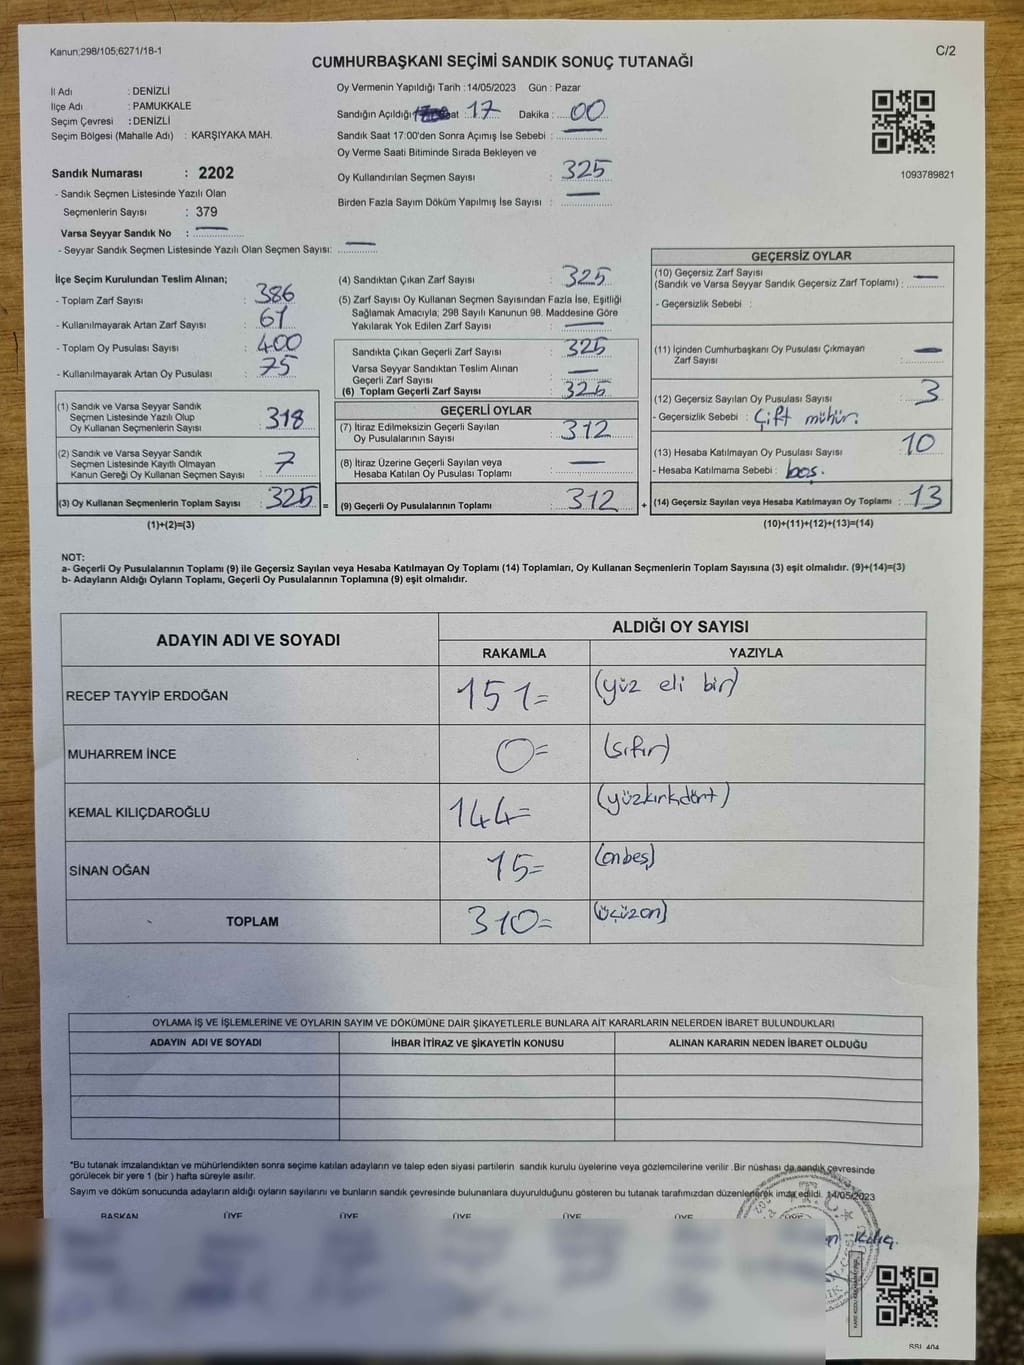 Kanun:298/105;6271/18-1
C/2
CUMHURBAŞKANI SEÇİMİ SANDIK SONUÇ TUTANAĞI
İl Adı : DENİZLİ
İlçe Adı : PAMUKKALE
Seçim Çevresi : DENİZLİ
Seçim Bölgesi (Mahalle Adı) : KARŞIYAKA MAH.
Oy Vermenin Yapıldığı Tarih : 14/05/2023 Gün : Pazar
Sandığın Açıldığı Saat : 17 Dakika : 00
Sandık Saat 17:00'den Sonra Açımış İse Sebebi : —
Oy Verme Saati Bitiminde Sırada Bekleyen ve
Oy Kullandırılan Seçmen Sayısı : 325
Birden Fazla Sayım Döküm Yapılmış İse Sayısı : —
1093789821
Sandık Numarası : 2202
- Sandık Seçmen Listesinde Yazılı Olan
Seçmenlerin Sayısı : 379
Varsa Seyyar Sandık No : —
- Seyyar Sandık Seçmen Listesinde Yazılı Olan Seçmen Sayısı: —
İlçe Seçim Kurulundan Teslim Alınan;
- Toplam Zarf Sayısı : 386
- Kullanılmayarak Artan Zarf Sayısı : 61
- Toplam Oy Pusulası Sayısı : 400
- Kullanılmayarak Artan Oy Pusulası : 75
(1) Sandık ve Varsa Seyyar Sandık
Seçmen Listesinde Yazılı Olup
Oy Kullanan Seçmenlerin Sayısı : 318
(2) Sandık ve Varsa Seyyar Sandık
Seçmen Listesinde Kayıtlı Olmayan
Kanun Gereği Oy Kullanan Seçmen Sayısı : 7
(3) Oy Kullanan Seçmenlerin Toplam Sayısı : 325 =
(1)+(2)=(3)
(4) Sandıktan Çıkan Zarf Sayısı : 325
(5) Zarf Sayısı Oy Kullanan Seçmen Sayısından Fazla İse, Eşitliği
Sağlamak Amacıyla; 298 Sayılı Kanunun 98. Maddesine Göre
Yakılarak Yok Edilen Zarf Sayısı : —
Sandıkta Çıkan Geçerli Zarf Sayısı : 325
Varsa Seyyar Sandıktan Teslim Alınan
Geçerli Zarf Sayısı : —
(6) Toplam Geçerli Zarf Sayısı : 325
GEÇERLİ OYLAR
(7) İtiraz Edilmeksizin Geçerli Sayılan
Oy Pusulalarının Sayısı : 312
(8) İtiraz Üzerine Geçerli Sayılan veya
Hesaba Katılan Oy Pusulası Toplamı : —
(9) Geçerli Oy Pusulalarının Toplamı : 312 +
GEÇERSİZ OYLAR
(10) Geçersiz Zarf Sayısı
(Sandık ve Varsa Seyyar Sandık Geçersiz Zarf Toplamı) : —
- Geçersizlik Sebebi :
(11) İçinden Cumhurbaşkanı Oy Pusulası Çıkmayan
Zarf Sayısı : —
(12) Geçersiz Sayılan Oy Pusulası Sayısı : 3
- Geçersizlik Sebebi : Çift mühür.
(13) Hesaba Katılmayan Oy Pusulası Sayısı : 10
- Hesaba Katılmama Sebebi : boş.
(14) Geçersiz Sayılan veya Hesaba Katılmayan Oy Toplamı : 13
(10)+(11)+(12)+(13)=(14)
NOT:
a- Geçerli Oy Pusulalarının Toplamı (9) ile Geçersiz Sayılan veya Hesaba Katılmayan Oy Toplamı (14) Toplamları, Oy Kullanan Seçmenlerin Toplam Sayısına (3) eşit olmalıdır. (9)+(14)=(3)
b- Adayların Aldığı Oyların Toplamı, Geçerli Oy Pusulalarının Toplamına (9) eşit olmalıdır.
ADAYIN ADI VE SOYADI ALDIĞI OY SAYISI
RAKAMLA YAZIYLA
RECEP TAYYİP ERDOĞAN 151= (yüz eli bir)
MUHARREM İNCE 0= (sıfır)
KEMAL KILIÇDAROĞLU 144= (yüzkırkdört)
SİNAN OĞAN 15= (onbeş)
TOPLAM 310= (üçüzon)
OYLAMA İŞ VE İŞLEMLERİNE VE OYLARIN SAYIM VE DÖKÜMÜNE DAİR ŞİKAYETLERLE BUNLARA AİT KARARLARIN NELERDEN İBARET BULUNDUKLARI
ADAYIN ADI VE SOYADI İHBAR İTİRAZ VE ŞİKAYETİN KONUSU ALINAN KARARIN NEDEN İBARET OLDUĞU
*Bu tutanak imzalandıktan ve mühürlendikten sonra seçime katılan adayların ve talep eden siyasi partilerin sandık kurulu üyelerine veya gözlemcilerine verilir .Bir nüshası da sandık çevresinde
görülecek bir yere 1 (bir ) hafta süreyle asılır.
Sayım ve döküm sonucunda adayların aldığı oyların sayılarını ve bunların sandık çevresinde bulunanlara duyurulduğunu gösteren bu tutanak tarafımızdan düzenlenerek imza edildi. 14/05/2023
BAŞKAN ÜYE ÜYE ÜYE ÜYE ÜYE ÜYE
T.C.
Kılıç.